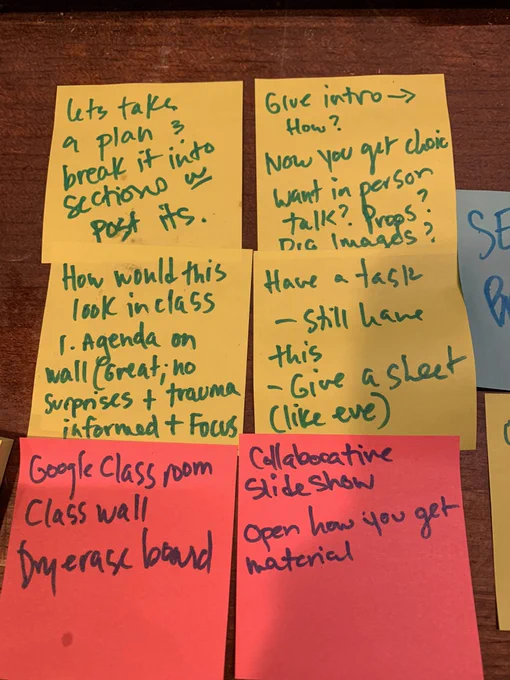 Lets take
a plan &
break it into
sections w
post its.
Give intro →
How?
Now you get choic
want in person
talk? Props?
Dig Images?
How would this
look in class
1. Agenda on
wall (Great; no
surprises + trauma
informed + Focus
Have a task
- Still have
this
- Give a sheet
(like eve)
SE
Google Class room
Class wall
Dry erase board
Collaborative
Slide Show
Open how you get
material